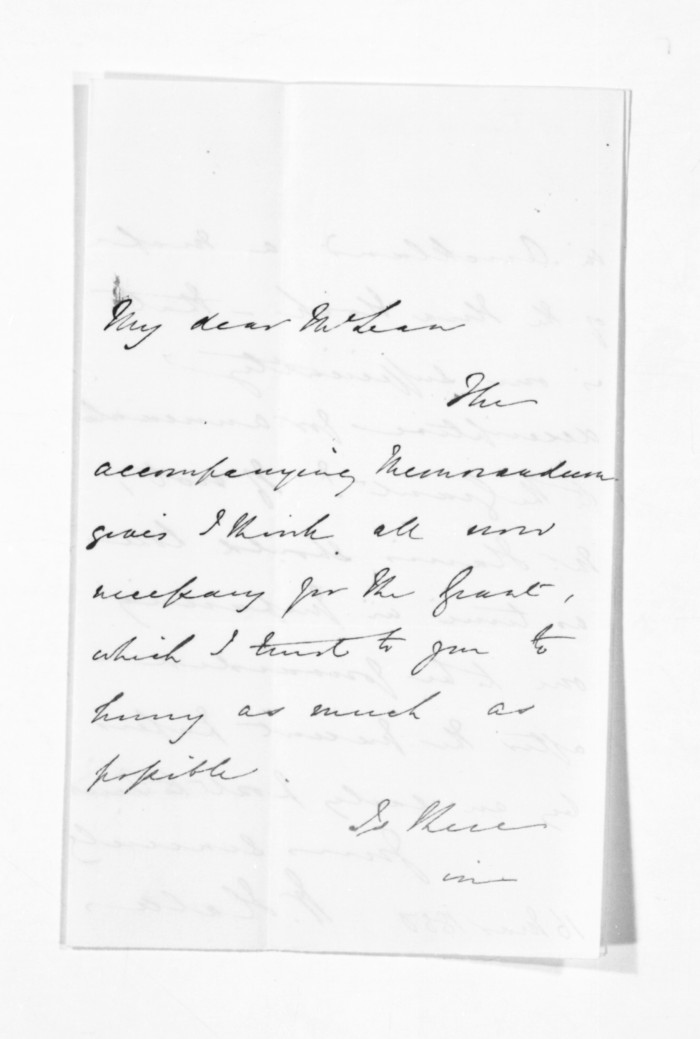 My dear McLean
The
accompanying Memorandum
gives I think all now
necessary for the Grant,
which I trust to you to
hurry as much as
possible.
Is there
in